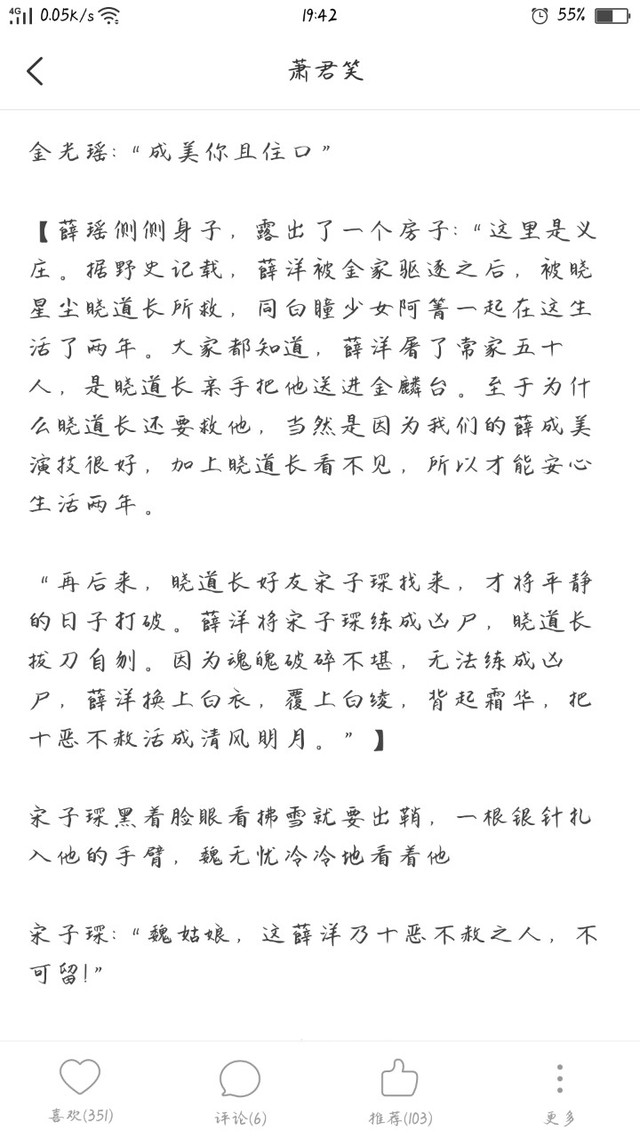 4G 0.05K/s 19:42 55%
萧君笑
金光瑶:“成美你且住口”
【薛瑶侧侧身子，露出了一个房子:“这里是义
庄。据野史记载，薛洋被金家驱逐之后，被晓
星尘晓道长所救，同白瞳少女阿箐一起在这生
活了两年。大家都知道，薛洋屠了常家五十
人，是晓道长亲手把他送进金麟台。至于为什
么晓道长还要救他，当然是因为我们的薛成美
演技很好，加上晓道长看不见，所以才能安心
生活两年。
“再后来，晓道长好友宋子琛找来，才将平静
的日子打破。薛洋将宋子琛练成凶尸，晓道长
拔刀自刎。因为魂魄破碎不堪，无法练成凶
尸，薛洋换上白衣，覆上白绫，背起霜华，把
十恶不赦活成清风明月。”】
宋子琛黑着脸眼看拂雪就要出鞘，一根银针扎
入他的手臂，魏无忧冷冷地看着他
宋子琛:“魏姑娘，这薛洋乃十恶不赦之人，不
可留!”
喜欢(351) 评论(6) 推荐(103) 更多